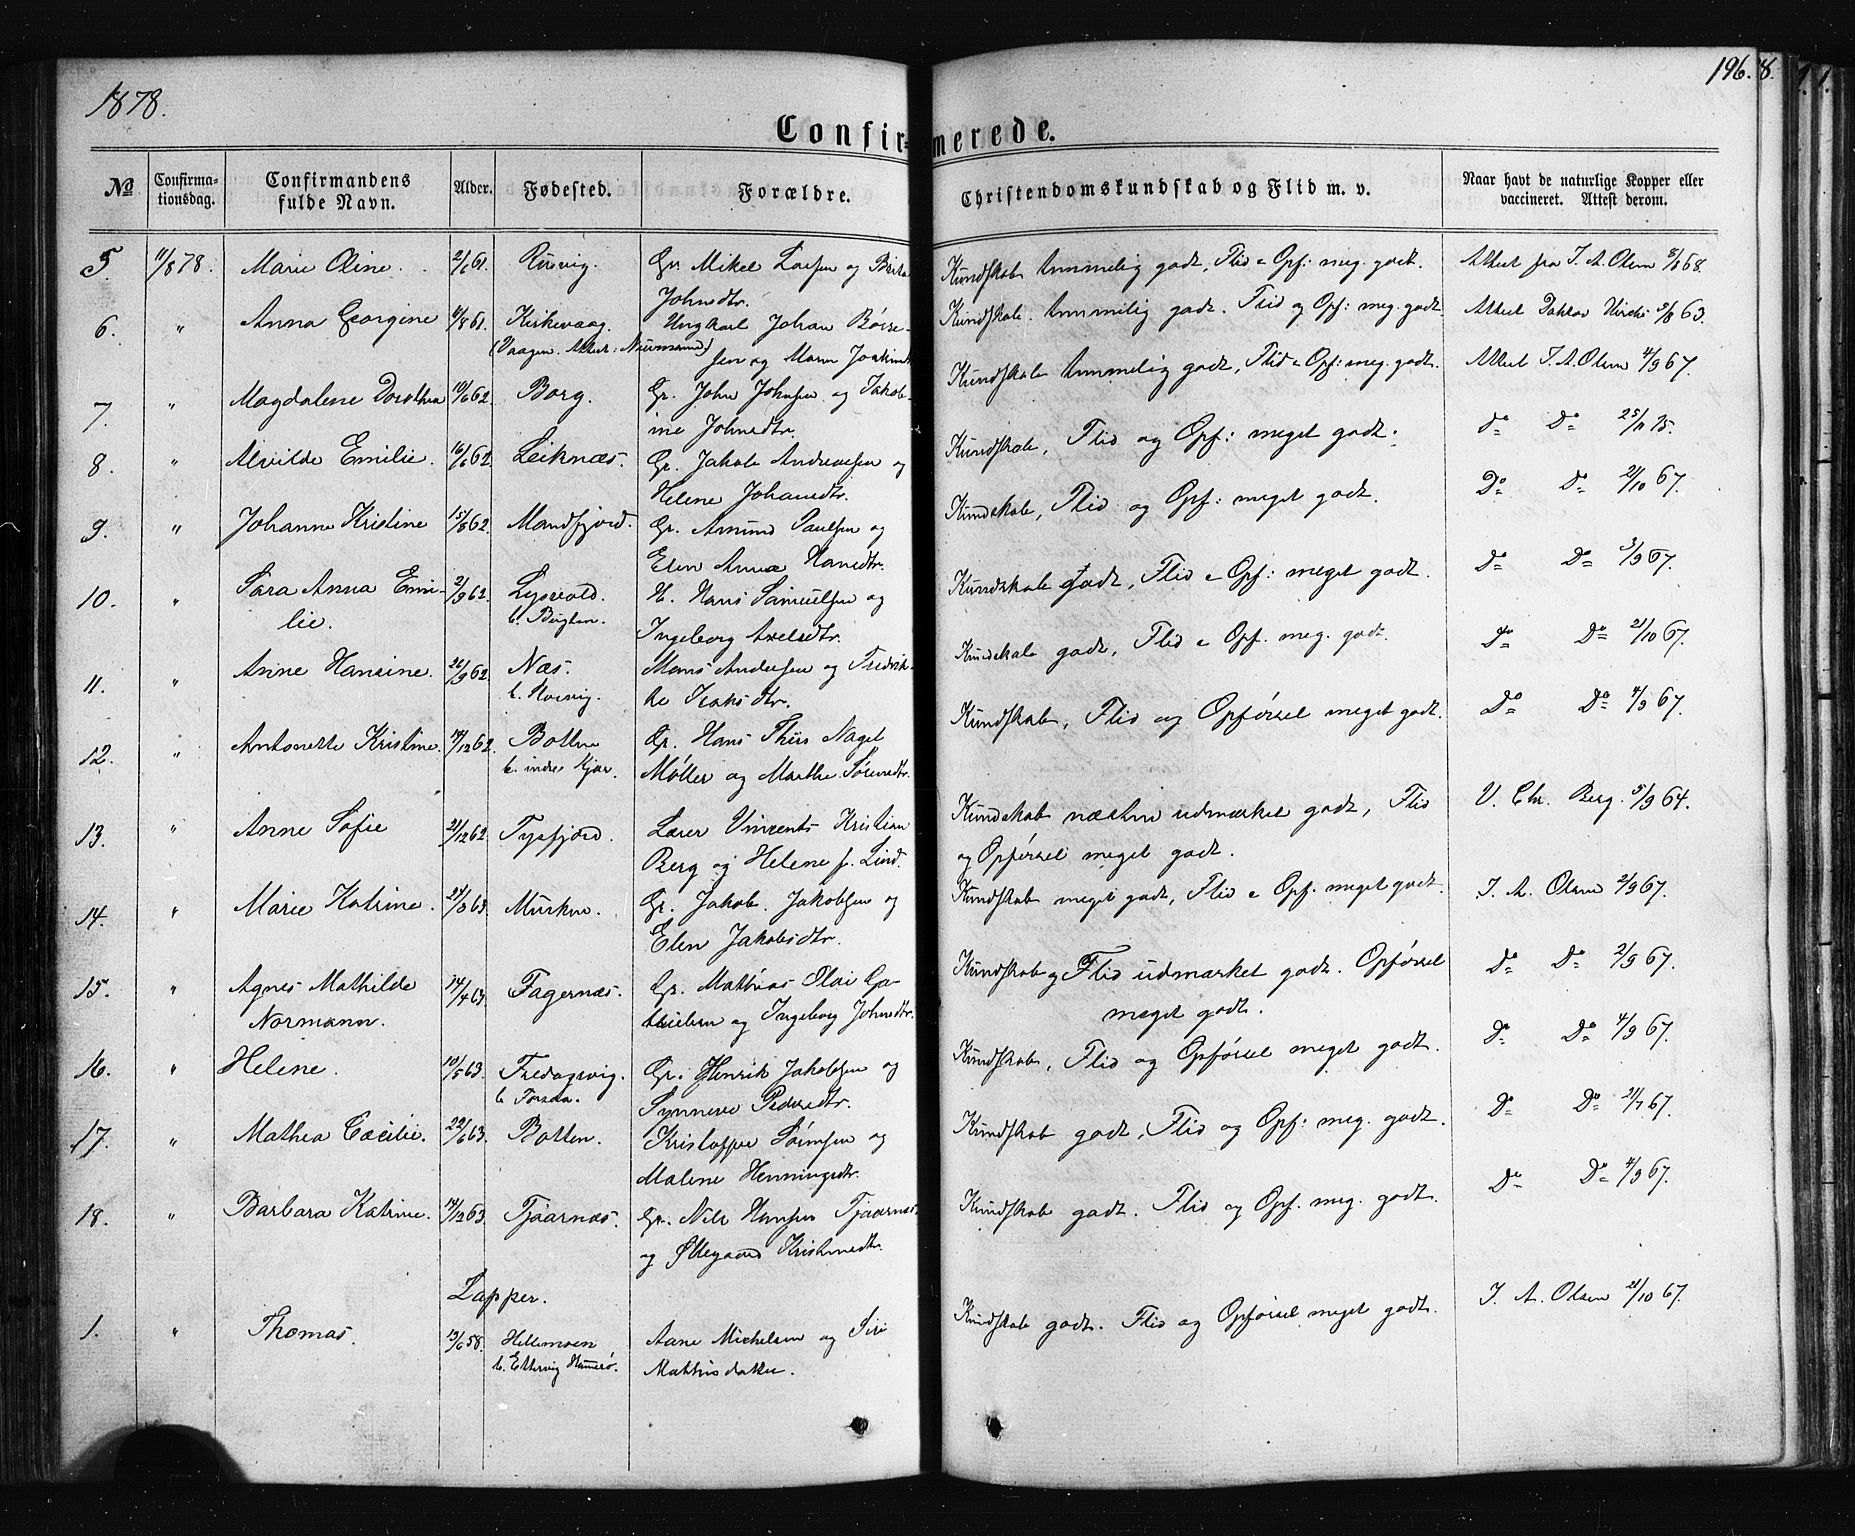 1878.
196.
8.
Confirmerede.
No
Confirmationsdag.
Confirmandens fulde Navn.
Alder.
Fødested.
Forældre.
Christendomskundskab og Flid m. v.
Naar havt de naturlige Kopper eller vaccineret. Attest derom.
5. 11/8 78. Marie Oline. 2/6 61. Gr. Mikel Larsen og
Johnsdtr.
Kundskab temmelig godt, Flid e Opf: meg. godt. Attest fra J. A. Olsen 68.
6. " Anna Georgine 61. Kirkevaag. Ungkarl Johan
sen og Maren
Kundskab. temmelig godt. Flid og Opf: meg. godt. Attest 63.
7. " Magdalene Dorothea 10/6 62. Borg. Gr. John Johnsen og Jakob-
ine Johnsdtr.
Kundskab temmelig godt, Flid e Opf: meg. godt. Attest J. A. Olsen 4/9 67.
8. " Alvilde Emilie. 16/6 62. Leiknæs. Gr. Jakob Andreassen og
Helene Johansdtr.
Kundskab, Flid og Opf: meget godt. do Do 25/11 75.
9. " Johanne Kristine 15/8 62. Mandfjord. Gr. Amund Paulsen og
Elen Anna Hansdtr.
Kundskab, Flid og Opf: meget godt. Do Do 21/10 67.
10. " Sara Anna Emi-
lie.
2/9 62. Lysvold. H. Hans Samuelsen og
Ingeborg Axelsdtr.
Kundskab godt, Flid e Opf: meget godt. Do Do 3/9 67.
11. " Anne Hansine. 22/9 62. Næs. Mons Andersen og Fredrik-
ke Isaksdtr.
Kundskab godt, Flid e Opf. meg. godt. do Do 21/10 67.
12. " Antonette Kristine. 62. Botten Gr. Hans Thiis Nagel
b. indre Kjær. Møller og Marthe Sørensdtr.
Kundskab, Flid og Opførsel meget godt. Do Do 4/9 67.
13. " Anne Sofie 21/12 62. Tysfjord. Lærer Vincents Kristian
Berg og Helene f. Lind.
Kundskab næsten udmærket godt, Flid V. Chr. Berg. 5/9 64.
og Opførsel meget godt.
14. " Marie Katrine. 63. Musken. Gr. Jakob Jakobsen og
Elen Jakobsdtr.
Kundskab meget godt, Flid e Opf. meget godt. J. A. Olsen 2/9 67.
15. " Agnes Mathilde
Normann.
14/4 63. Fagernæs. Gr. Mathias Olai
og Ingeborg Johnsdtr.
Kundskab og Flid udmærket godt. Opførsel Do Do 2/9 67.
meget godt.
16. " Helene. 10/5 63. Fredagsvig. Gr. Henrik Jakobsen og
b. Forsaa. Synneve Pedersdtr.
Kundskab, Flid og Opførsel meget godt. Do Do 4/9 67.
17. " Mathea Cæcilie. 22/6 63. Botten. Kristoffer Sørensen og
Malene Henningsdtr.
Kundskab godt, Flid og Opf: meg. godt. Do Do 67.
18. " Barbara Katrine. 63. Tjaarnæs. Gr. Nils Hansen Tjaarnæs
og Øllegaard Kristensdtr.
Kundskab godt. Flid og Opf. meg. godt. Do Do 4/9 67.
Lapper.
1. " Thomas. 13/6 58. Hellemoen Aane Michelsen og Siri
b. Ettervig Hamerø. Mathisdatter.
Kundskab godt. Flid og Opførsel meget godt. J. A. Olsen 21/10 67.